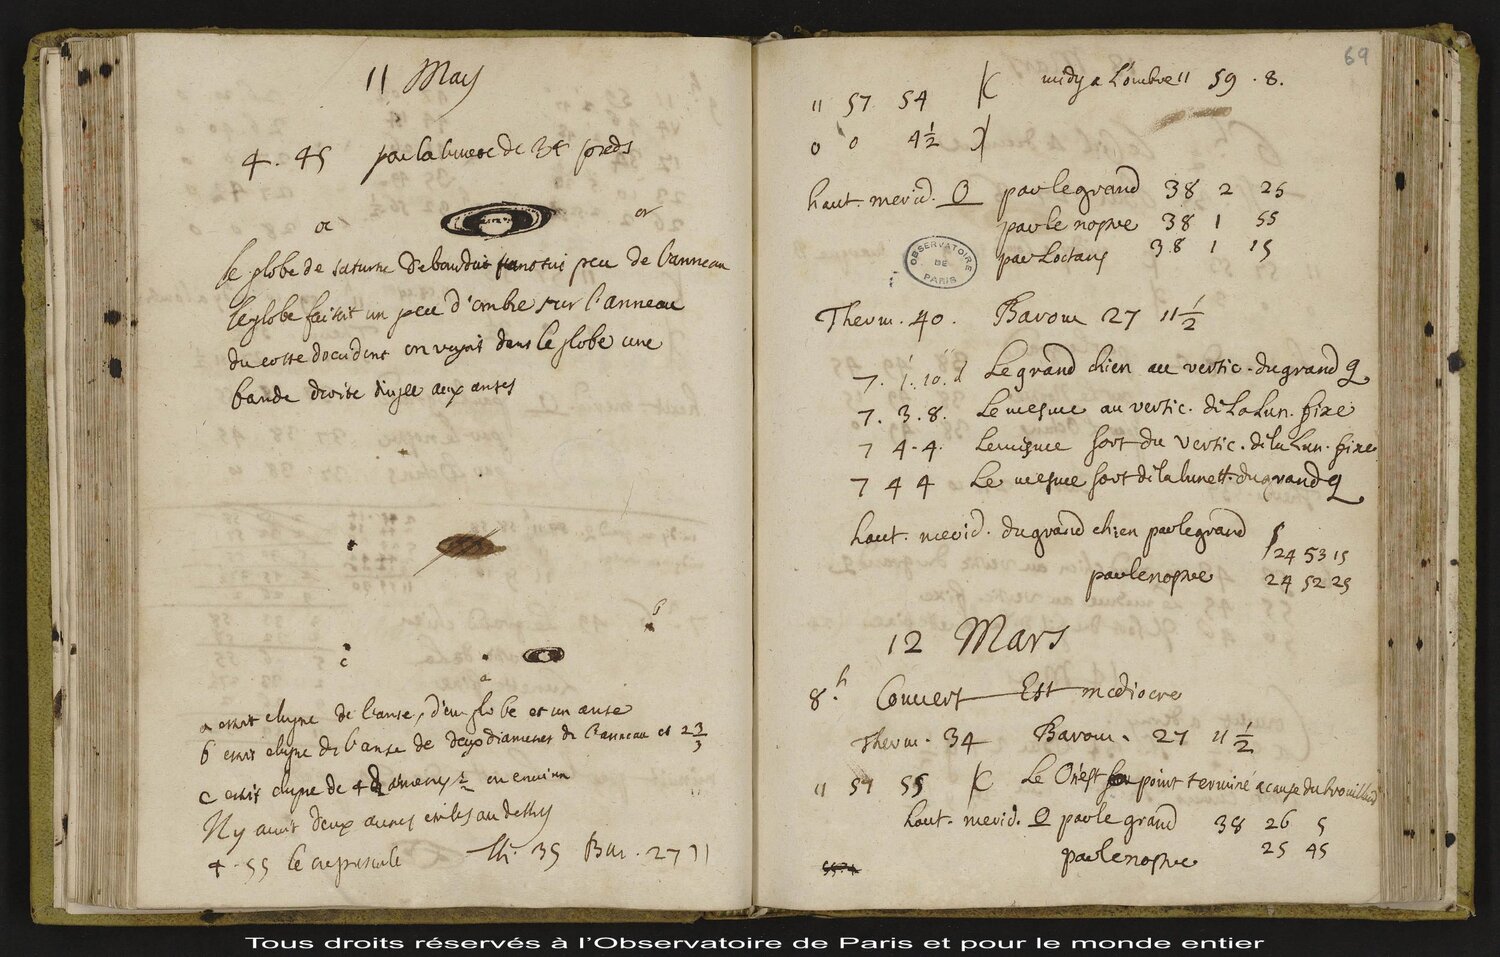 11 Mars
4. 45 par la lunete de 34 pieds
or or
le globe de saturne debordoit un peu de l'anneau
le globe faisoit un peu d'ombre sur l'anneau
du coste doccident on voyoit dans le globe une
bande droite dirigee aux anses
b
c
a
a estoit eloigné de l'anse, d'un globe et un anse
b estoit eloigné de l'anse de deux diametres de l'anneau et 2/3
c estoit eloigné de 4 diametres 1/2 ou environ
Il y avoit deux autres etoiles au dessus
4. 55 le crepuscule Th. 35 Bar. 27 11
69
midy a l'ombre 11 59 . 8.
11 57 54
0 0 4 1/2
haut. merid. par le grand 38 2 25
par le nostre 38 1 55
OBSERVATOIRE DE PARIS
par l'octans 38 1 15
Therm. 40. Barom 27 11 1/2
7. 1. 10. d Le grand chien au vertic. du grand q.
7. 3. 8. Le mesme au vertic. de la Lun. fixe
7 4. 4. Le mesme sort du vertic. de la Lun. fixe
7 4 4 Le mesme sort de la lunett. du grand q.
haut. merid. du grand chien par le grand 24 53 15
par le nostre 24 52 25
12 Mars
8.h Couvert Est mediocre
Therm. 34 Barom. 27 11 1/2
11 57 55 Le n'est point terminé a cause du brouillard
haut. merid. par le grand 38 26 5
par le nostre 25 45
Tous droits réservés à l'Observatoire de Paris et pour le monde entier